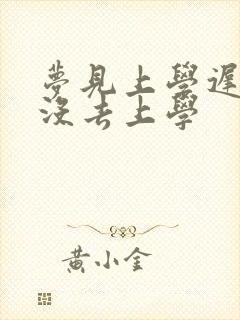 夢見上學遲
沒去上學
黃小金